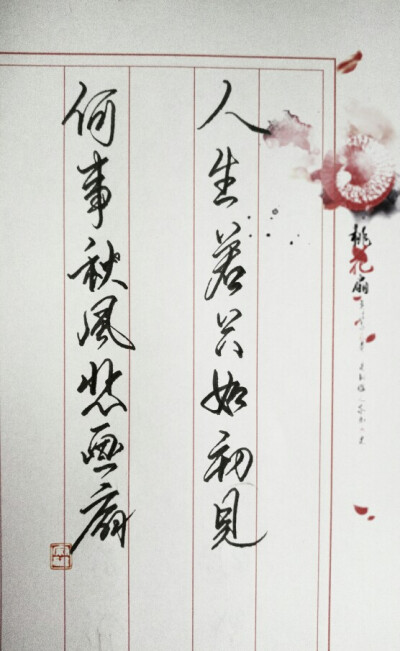 人生若只如初见
何事秋风悲画扇
桃花扇